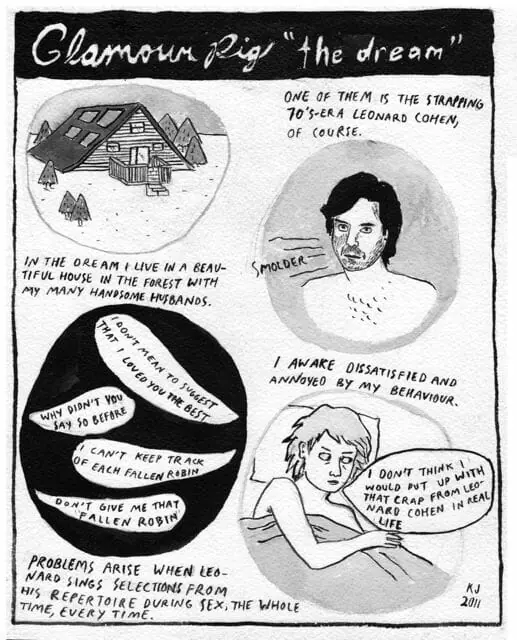 Glamour Pig "the dream"
IN THE DREAM I LIVE IN A BEAU-
TIFUL HOUSE IN THE FOREST WITH
MY MANY HANDSOME HUSBANDS.
ONE OF THEM IS THE STRAPPING
70'S-ERA LEONARD COHEN,
OF COURSE.
SMOLDER
I DON'T MEAN TO SUGGEST
THAT I LOVED YOU THE BEST
WHY DIDN'T YOU
SAY SO BEFORE
I CAN'T KEEP TRACK
OF EACH FALLEN ROBIN
DON'T GIVE ME THAT
FALLEN ROBIN
PROBLEMS ARISE WHEN LEO-
NARD SINGS SELECTIONS FROM
HIS REPERTOIRE DURING SEX, THE WHOLE
TIME, EVERY TIME.
I AWAKE DISSATISFIED AND
ANNOYED BY MY BEHAVIOUR.
I DON'T THINK I
WOULD PUT UP WITH
THAT CRAP FROM LEO-
NARD COHEN IN REAL
LIFE
KJ
2011